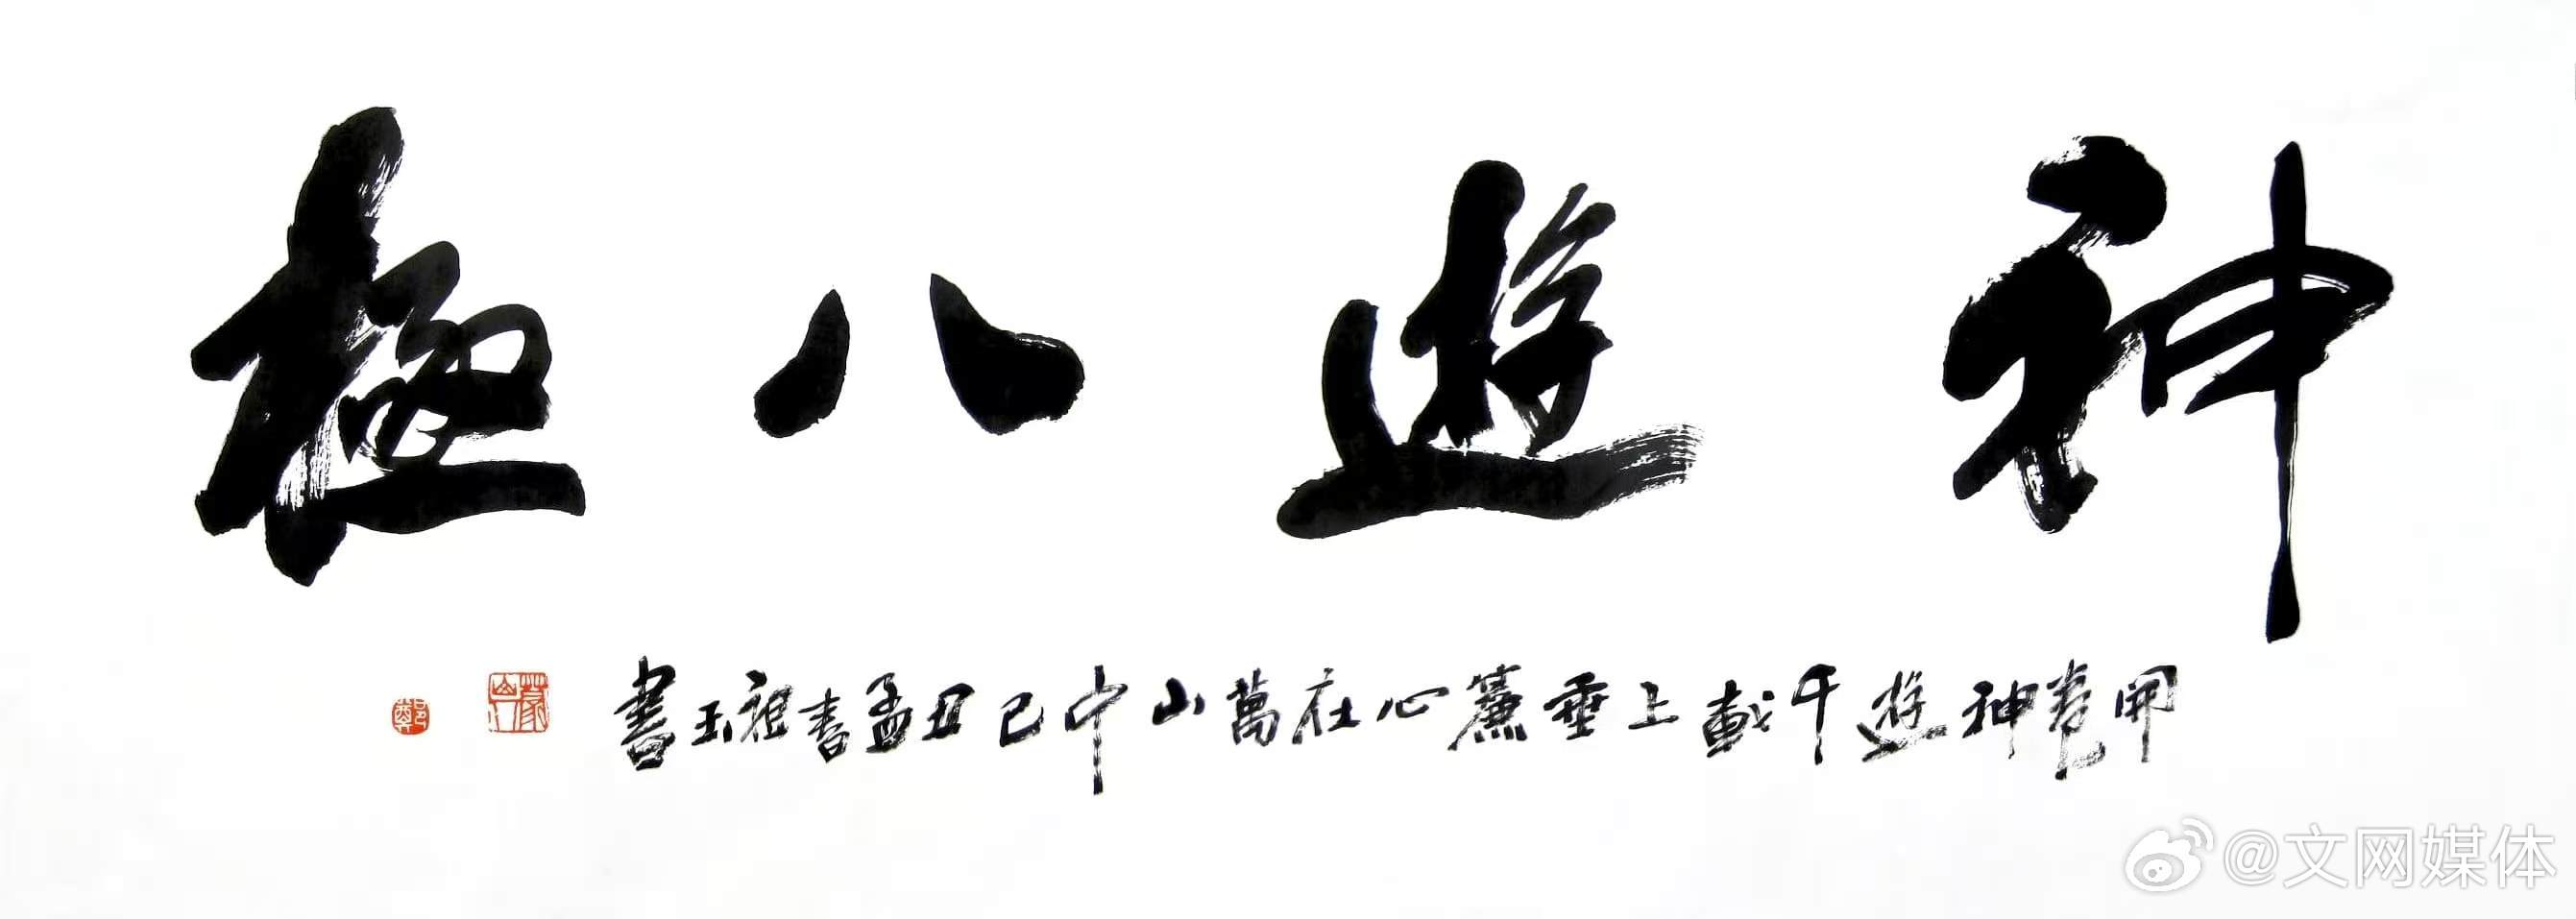 神遊八極
開卷神遊千載上垂簾心在萬山中己丑孟春祖玉書
鄭
@文网媒体